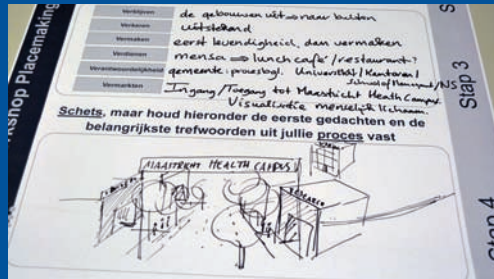 Workshop Placemaking
Verblijven de gebouwen uit => naar buiten
Verkeren uitstekend
Vermaken eerst levendigheid, dan vermaken
Verdienen mensa => lunch café / restaurant?
Verantwoordelijkheid gemeente: proces Universiteit / Kantoren / NS
Vermarkten Ingang / Toegang tot Maastricht Heath Campus
Visualisatie menselijk lichaam.
Stap 3
Schets, maar houd hieronder de eerste gedachten en de
belangrijkste trefwoorden uit jullie proces vast
MAASTRICHT HEALTH CAMPUS
RESEARCH
Stap 4